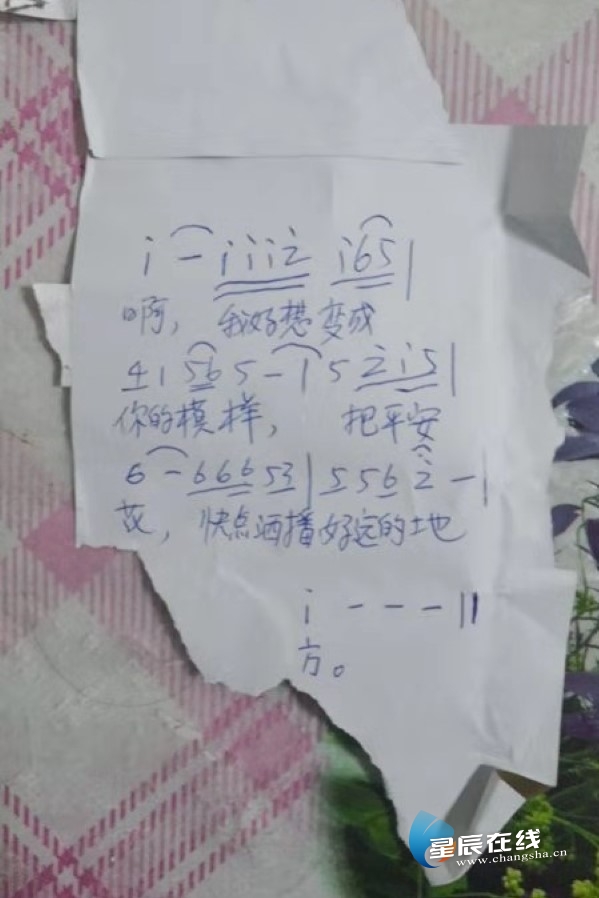 i - i i i 2̇ i 6 5 |
啊，我好想变成
4 1 5 6 5 - | 5 2̇ i 5 |
你的模样，把平安
6 - 6 6 6 5 3 | 5 5 6 2̇ - |
花，快点洒播好远的地
i - - - ||
方。
星辰在线
www.changsha.cn